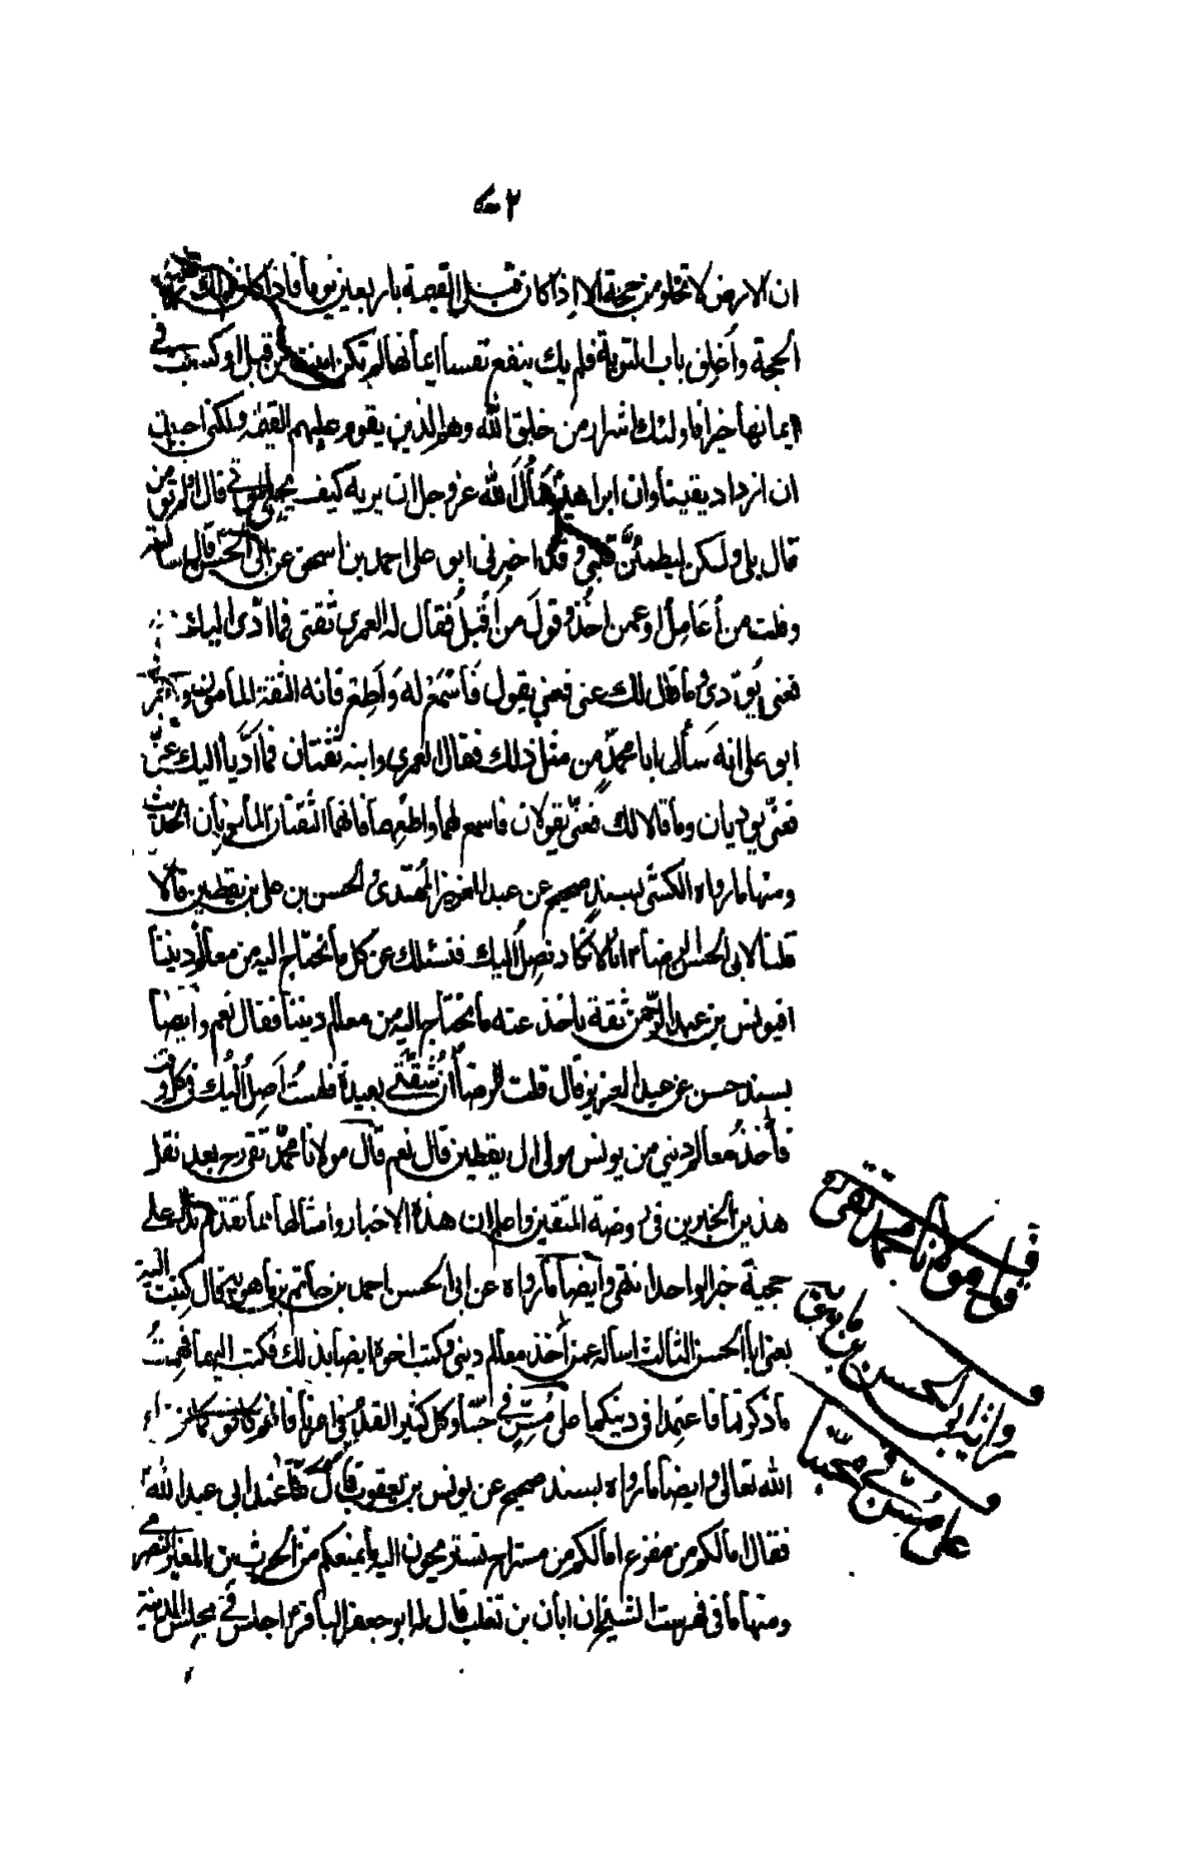 ان الارض لا تخلو من حجة الا اذا كان قبل القيمة باربعين يوما فاذا كان ذلك رفعت
الحجة واغلق باب التوبة فلم يك ينفع نفسا ايمانها لم تكن امنت من قبل او كسبت في
ايمانها خيرا فاولئك اشرار من خلق الله وهم الذين يقوم عليهم القيمة ولكني احببت
ان ازداد يقينا وان ابراهيم سأل الله عز وجل ان يريه كيف يحيى الموتى قال اولم تؤمن
قال بلى ولكن ليطمئن قلبي وقد اخبرني ابو علي احمد بن اسحق عن ابي الحسن قال سالته
وقلت من أعامل او عمن اخذ وقول من أقبل فقال له العمري ثقتي فما ادى اليك
فعني يؤدي وما قال لك عني فعني يقول فاسمع له وأطع فانه الثقة المأمون واخبرني
ابو علي انه سأل ابا محمد من مثل ذلك فقال العمري وابنه ثقتان فما أديا اليك عني
فعني يوديان وما قالا لك فعني يقولان فاسمع لهما واطعهما فانهما الثقتان المأمونان الحديث
ومنها ما رواه الكشي بسند صحيح عن عبد العزيز المهتدي والحسن بن علي بن يقطين قالا
قلنا لابي الحسن الرضا انا لا نكاد نصل اليك فنسئلك عن كل ما نحتاج اليه من معالم ديننا
افيونس بن عبد الرحمن ثقة ناخذ عنه ما نحتاج اليه من معالم ديننا فقال نعم وايضا
بسند حسن عن عبد العزيز قال قلت للرضا ان شقتي بعيدة فلست أصل اليك في كل وقت
فأخذ معالم ديني من يونس مولى ال يقطين قال نعم قال مولانا محمد تقي رح بعد نقل
هذين الخبرين في روضة المتقين واعلم ان هذه الاخبار وامثالها مما تقدم تدل على
حجية خبر الواحد انتهى وايضا ما رواه عن ابي الحسن احمد بن حاتم بن ماهويه قال كتبت اليه
يعني ابا الحسن الثالث اساله عمن أخذ معالم ديني وكتب اخوه ايضا بذلك فكتب اليهما فهمت
ما ذكرتما فاعتمدا في دينكما على مسن في حبنا وكل كثير القدم في امرنا فانهم كافوكما ان شاء
الله تعالى وايضا ما رواه بسند صحيح عن يونس بن يعقوب قال كنا عند ابي عبد الله
فقال اما لكم من مفزع اما لكم من مستراح تستريحون اليه ما يمنعكم من الحرث بن المغيرة النصري
ومنها ما في فهرست الشيخ ان ابان بن تغلب قال له ابو جعفر الباقر اجلس في مجلس المدينة
قول مولانا محمد تقي
وانا ابو الحسن
على مسن في محبنا